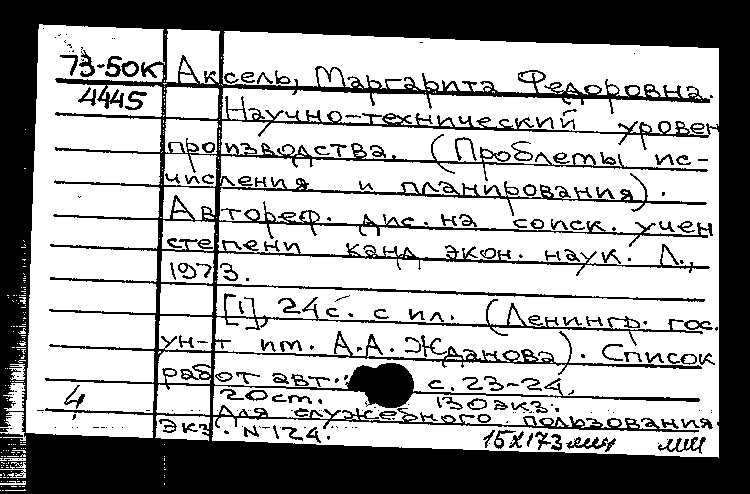 73-50К Аксель, Маргарита Федоровна.
4445 Научно-технический уровен
производства. (Проблемы ис-
числения и планирования).
Автореф. дис. на соиск. учен
степени канд. экон. наук. Л.,
1973.
[1], 24 с. с ил. (Ленингр. гос.
ун-т им. А.А. Жданова). Список
работ авт.: с. 23-24,
20 ст. 130 экз.
4 Для служебного пользования.
экз. № 124. 15х173